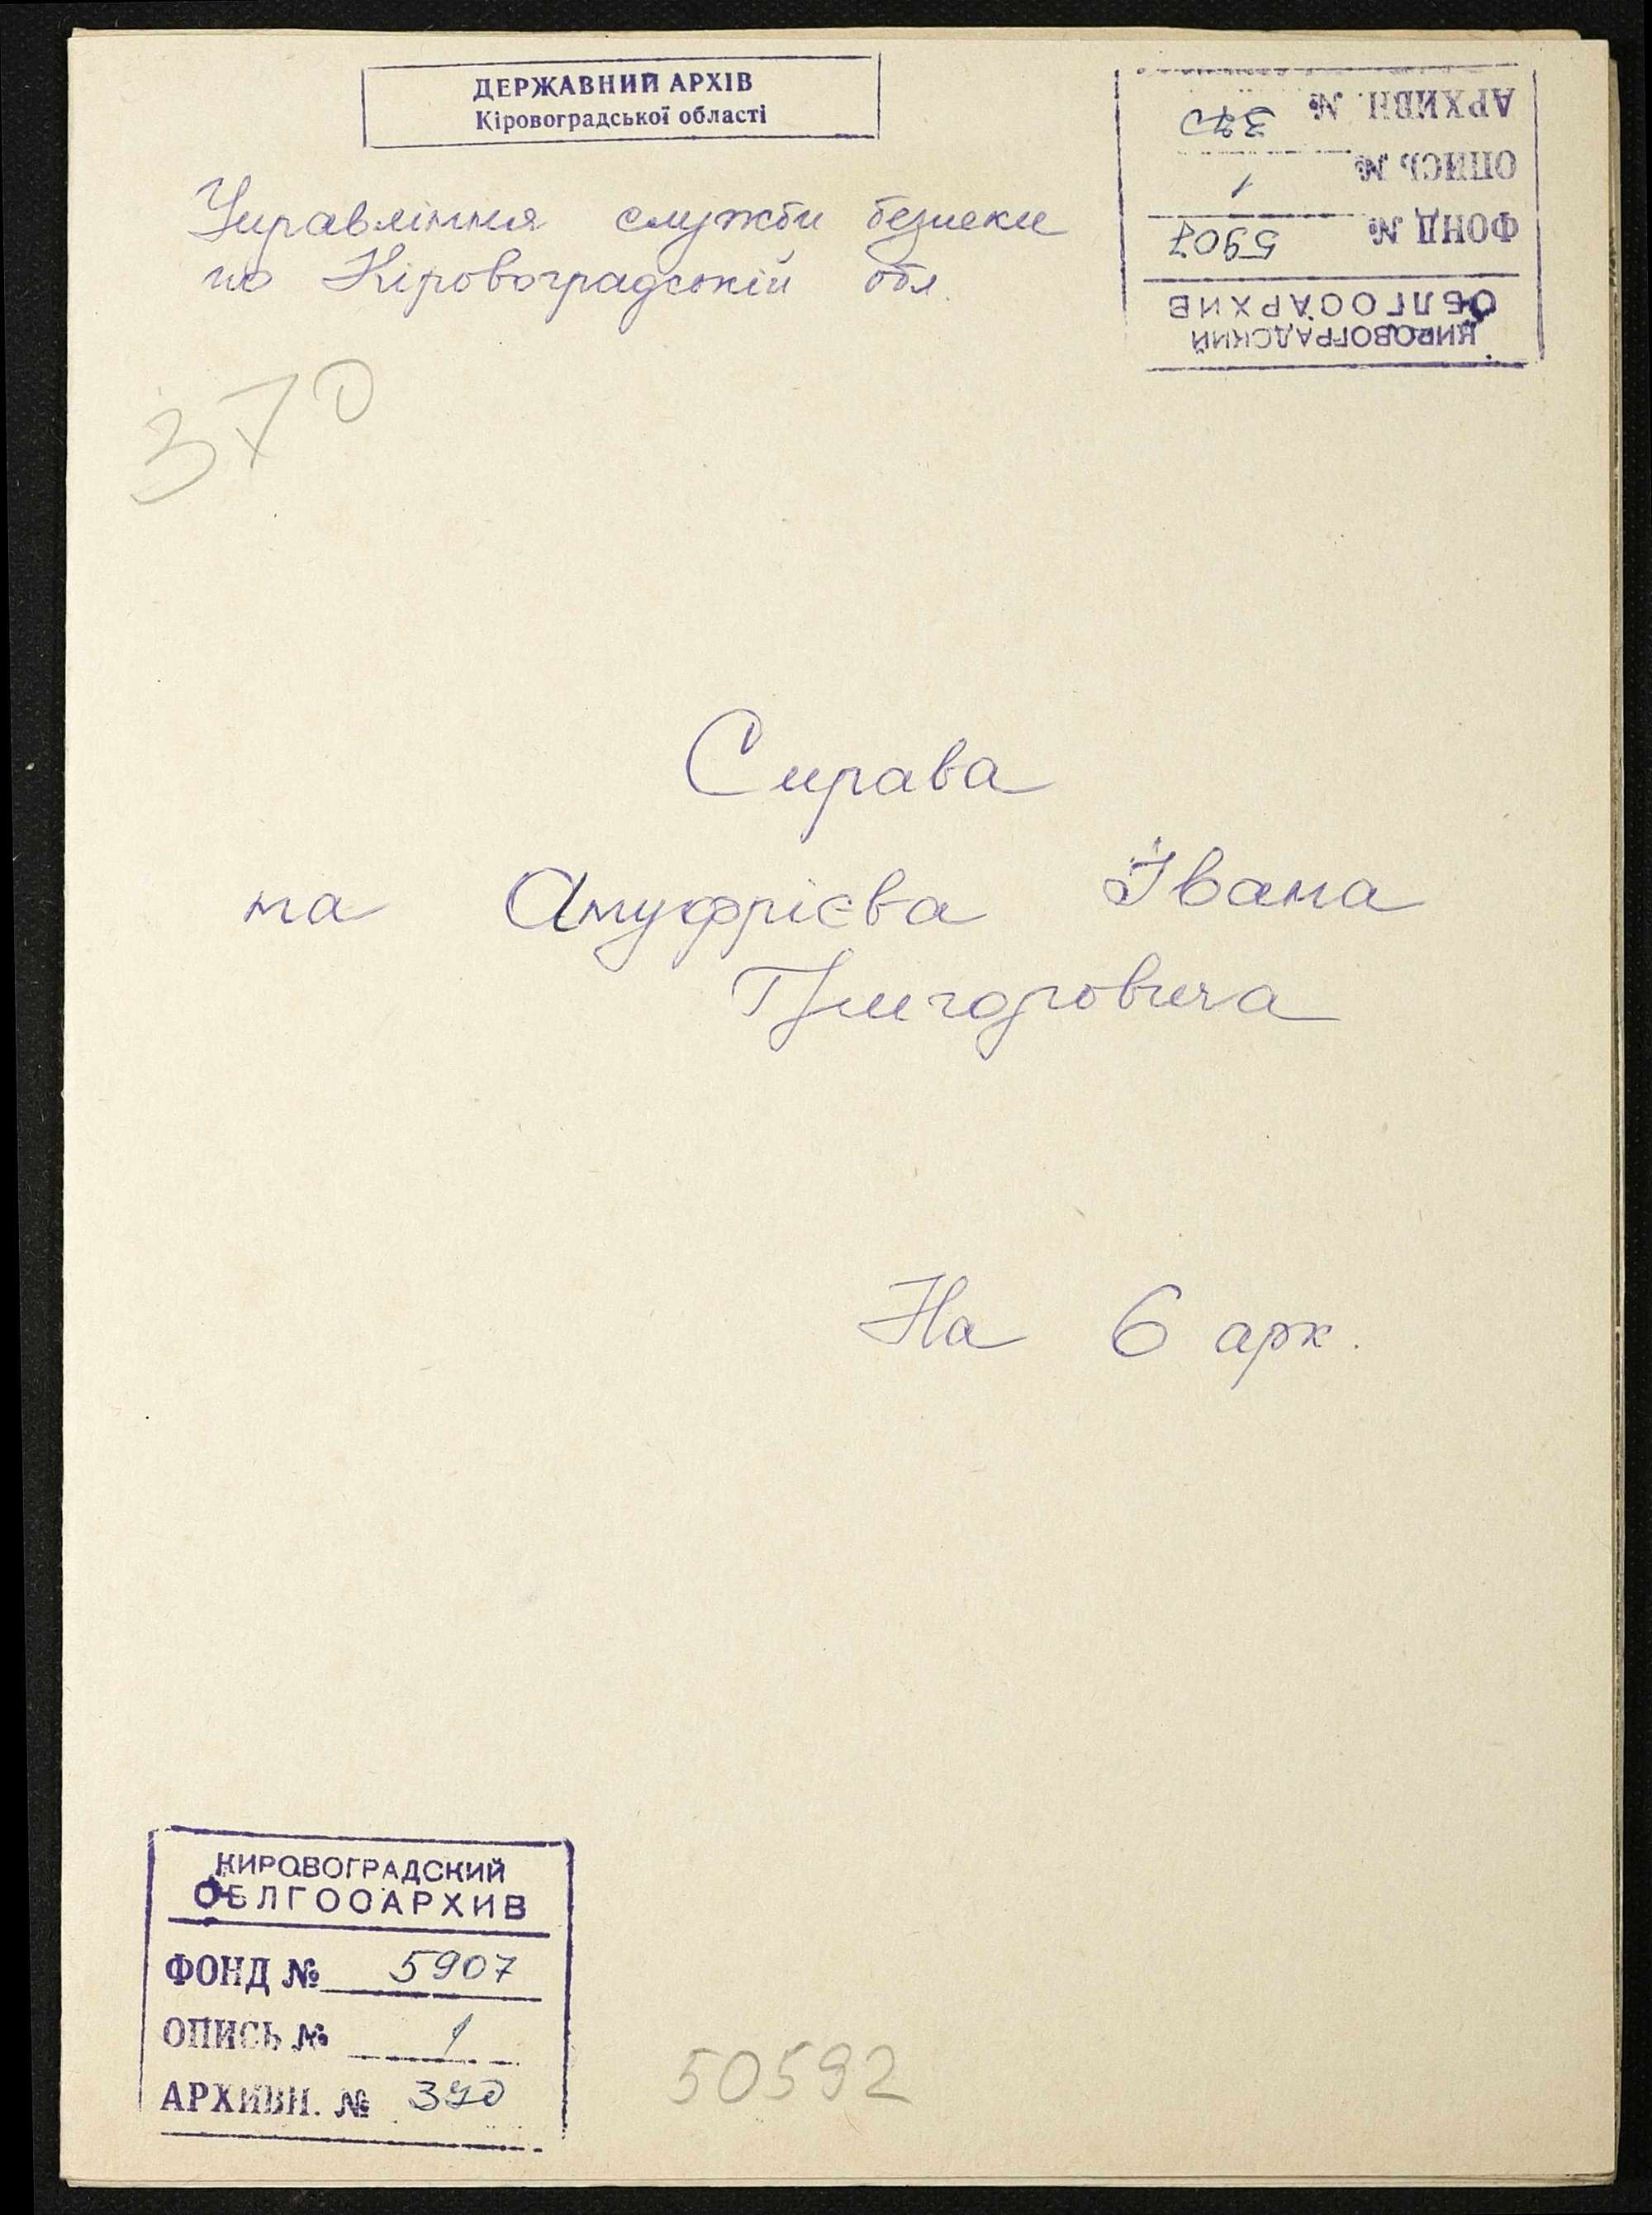 ДЕРЖАВНИЙ АРХІВ
Кіровоградської області
АРХИВН. № 370
ОПИСЬ № 1
ФОНД № 5907
КИРОВОГРАДСКИЙ
ОБЛГОСАРХИВ
Управління служби безпеки
по Кіровоградській обл.
370
Справа
на Ануфрієва Івана
Григоровича
На 6 арк.
КИРОВОГРАДСКИЙ
ОБЛГОСАРХИВ
ФОНД № 5907
ОПИСЬ № 1
АРХИВН. № 370
50592